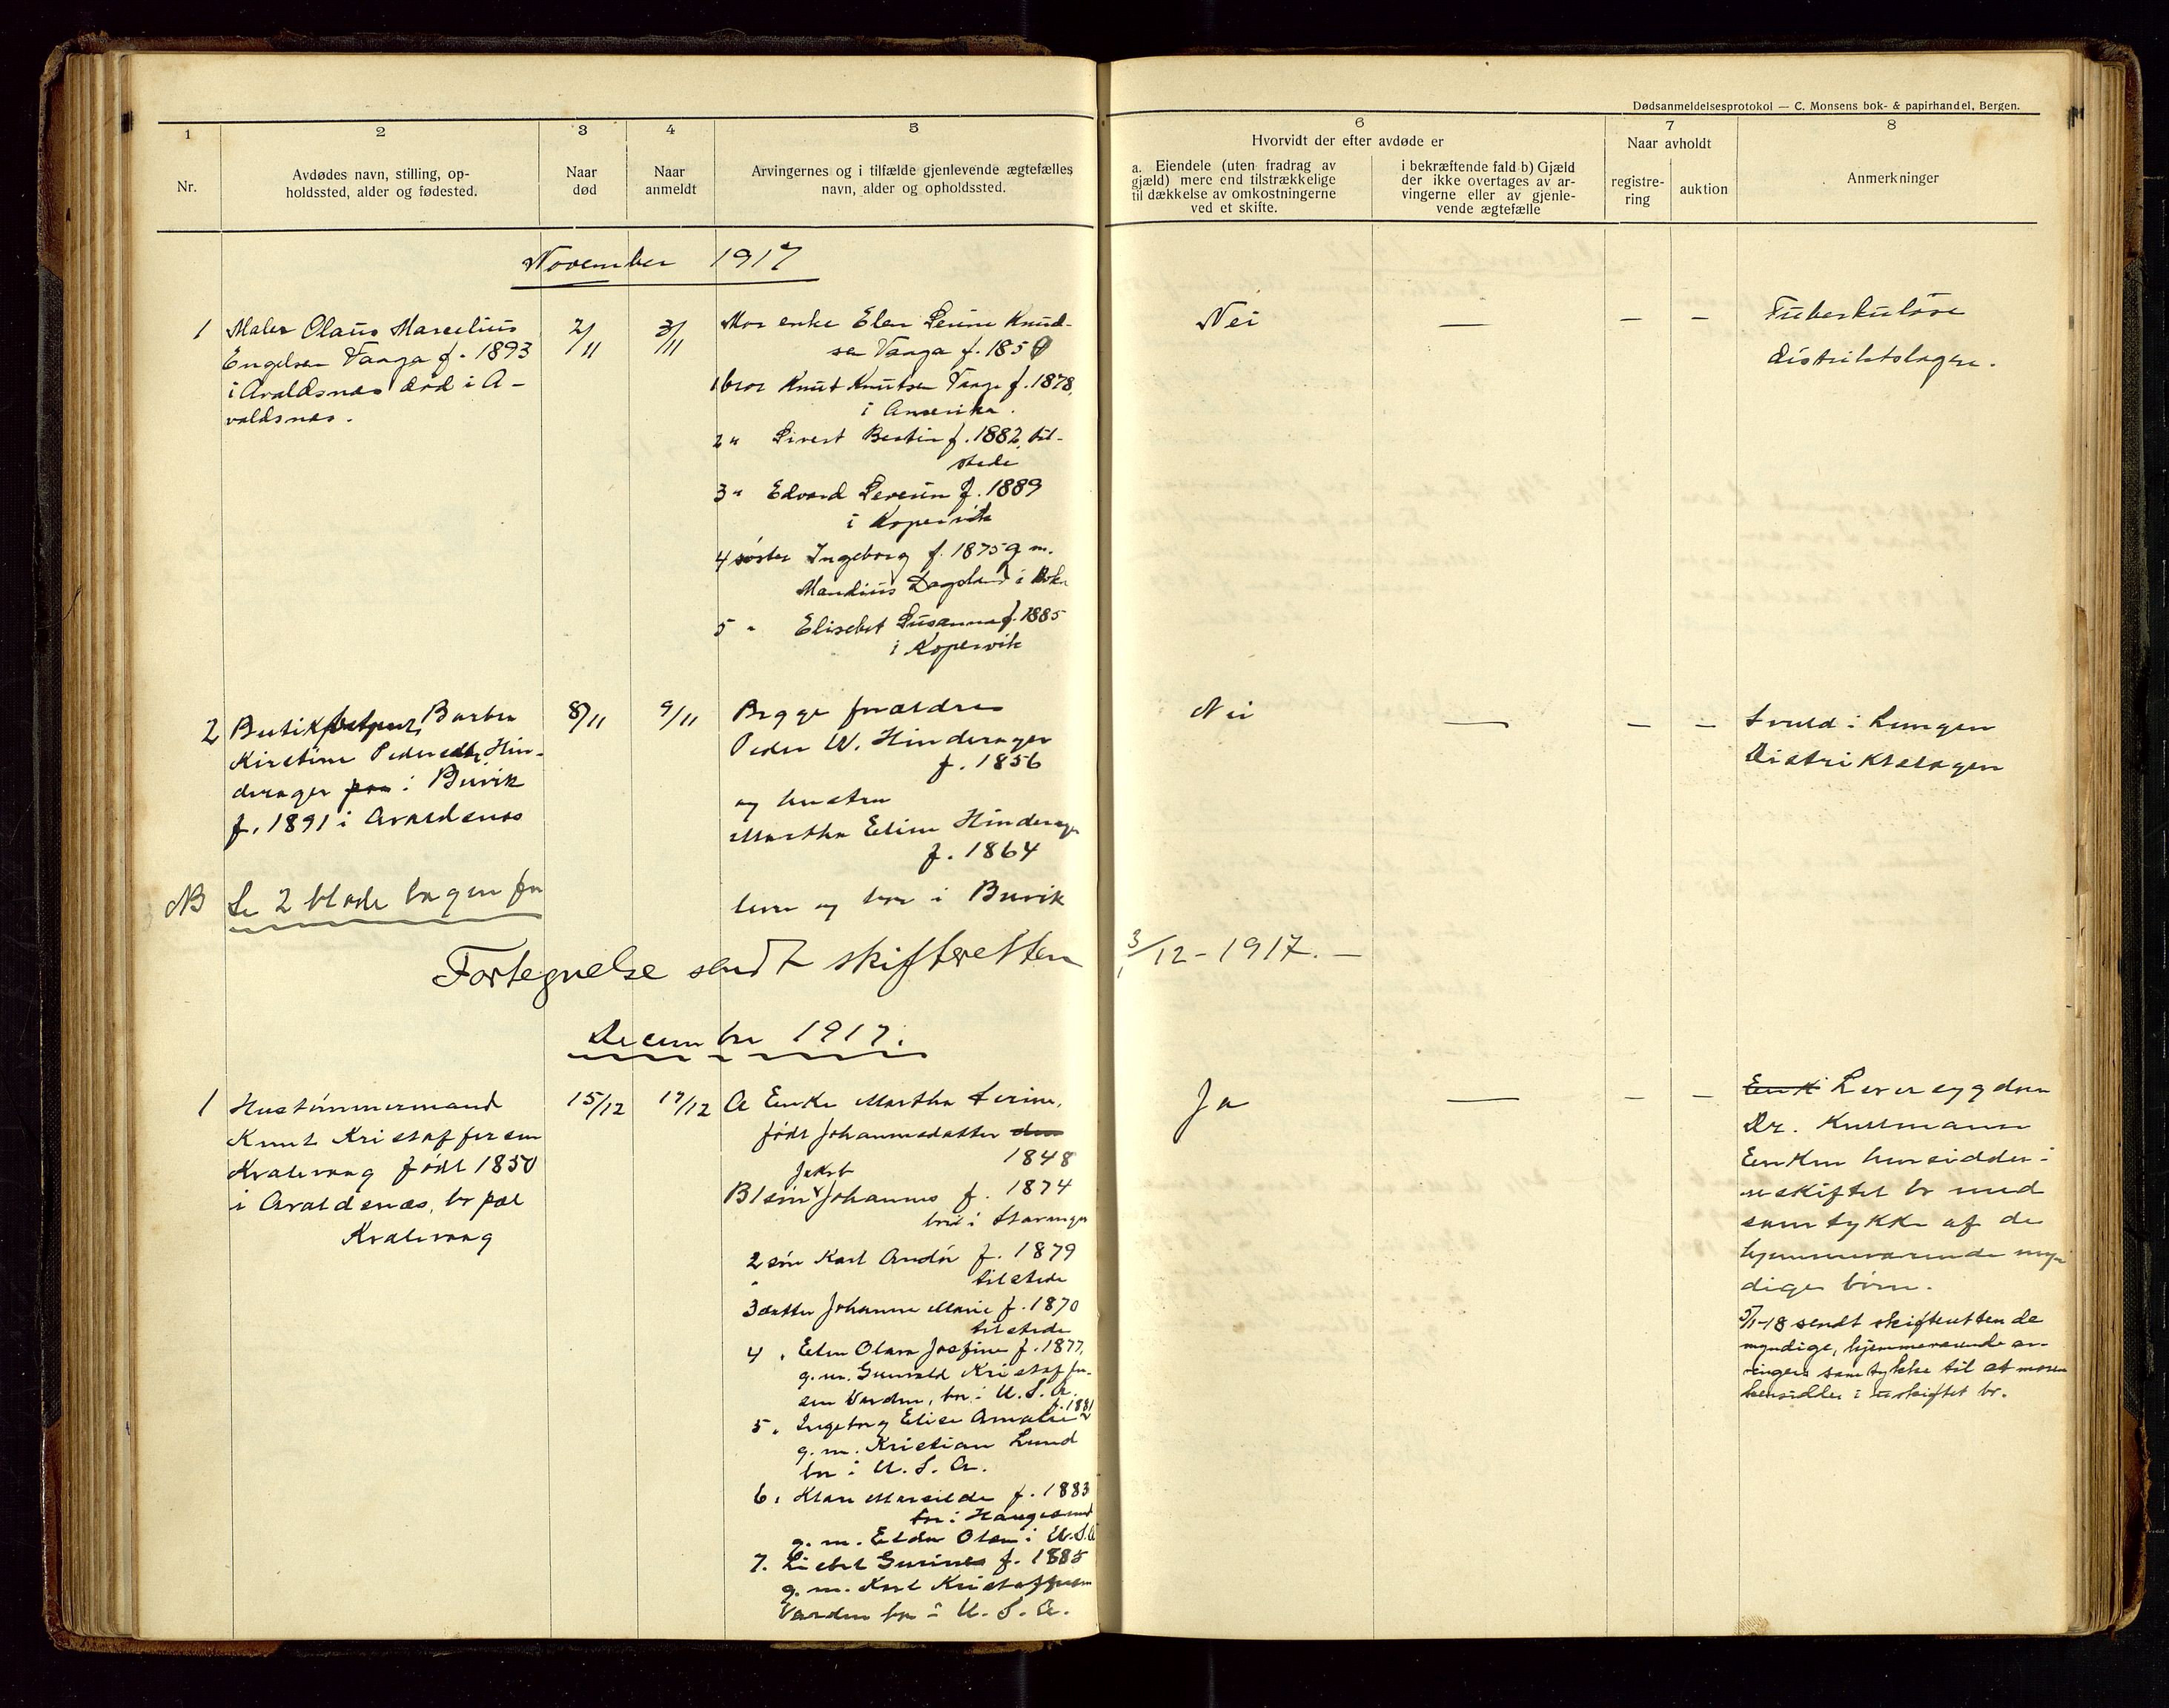 Dødsanmeldelsesprotokol — C. Monsens bok- & papirhandel, Bergen.
1
2
3
4
5
6
7
8
Nr.
Avdødes navn, stilling, op-
holdssted, alder og fødested.
Naar
død
Naar
anmeldt
Arvingernes og i tilfælde gjenlevende ægtefælles
navn, alder og opholdssted.
Hvorvidt der efter avdøde er
a. Eiendele (uten fradrag av
gjæld) mere end tilstrækkelige
til dækkelse av omkostningerne
ved et skifte.
i bekræftende fald b) Gjæld
der ikke overtages av ar-
vingerne eller av gjenle-
vende ægtefælle
Naar avholdt
registre-
ring
auktion
Anmerkninger
November 1917
1
Maler Olaus Marcelius
Engelsen Vaaga f. 1893
i Avaldsnes død i A-
valdsnes.
2/11
3/11
Mor enke Elen Serine Knud-
sen Vaaga f. 185
1 bror Knut Knutsen Vaage f. 1878,
i Amerika.
2 " Sivert Bertin f. 1882, til-
stede
3 " Edvard Severin f. 1889
i Kopervik
4 søster Ingeborg f. 1875 g. m.
Mandius Dagsland i Bokn
5 " Elisebet Susanna f. 1885
i Kopervik
Nei
—
—
—
Tuberkuløse
distriktslægen.
2
Butik Barbra
Kirstine Pedersdtr Hin-
derager paa i Buvik
f. 1891 i Avaldsnes
8/11
9/11
Begge forældre
Peder W. Hinderager
f. 1856
og hustru
Martha Eline Hinderager
f. 1864
lever og bor i Buvik
Nei
—
—
—
Svuld i Lungen
Distriktslægen
NB Se 2 blade bagenfor
Fortegnelse sendt skifteretten 3/12 - 1917. —
December 1917.
1
Hustømmermand
Knut Kristoffersen
Kvalevaag født 1850
i Avaldsnæs, br paa
Kvalevaag
15/12
17/12
A Enke Martha Serine,
født Johannesdatter den
1848
B 1 søn Jakob Johannes f. 1874
bor i Stavanger
2 søn Karl Andor f. 1879
tilstede
3 datter Johanne Marie f. 1870
tilstede
4 " Elen Olava Josefine f. 1877,
g. m. Gunvald Kristoffer-
sen Varden, bor i U. S. A.
5 " Ingeborg Elise Amalie f. 1881
g. m. Kristian Lund
bor i U. S. A.
6 " Klara Marsilde f. 1883
bor i Haugesund
g. m. Elder Olsen i U.S.A
7. Lisbet Gurine f. 1885
g. m. Karl Kristoffersen
Varden bor i U. S. A.
Ja
—
—
—
Enk Leversygdom
Dr. Kullmann
Enken hensidder i
uskiftet bo med
samtykke af de
hjemmeværende myn-
dige børn.
5/1-18 sendt skifteretten de
myndige, hjemmeværende ar-
vingers samtykke til at moren
hensidder i uskiftet bo.